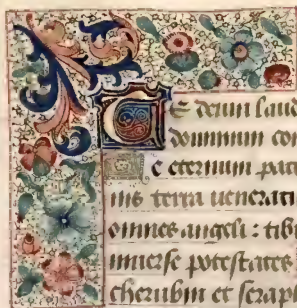 TE deum laud
dominum con
Te eternum patr
nis terra uenerati
omnes angeli : tibi
uniuerse potestates
cherubin et serap